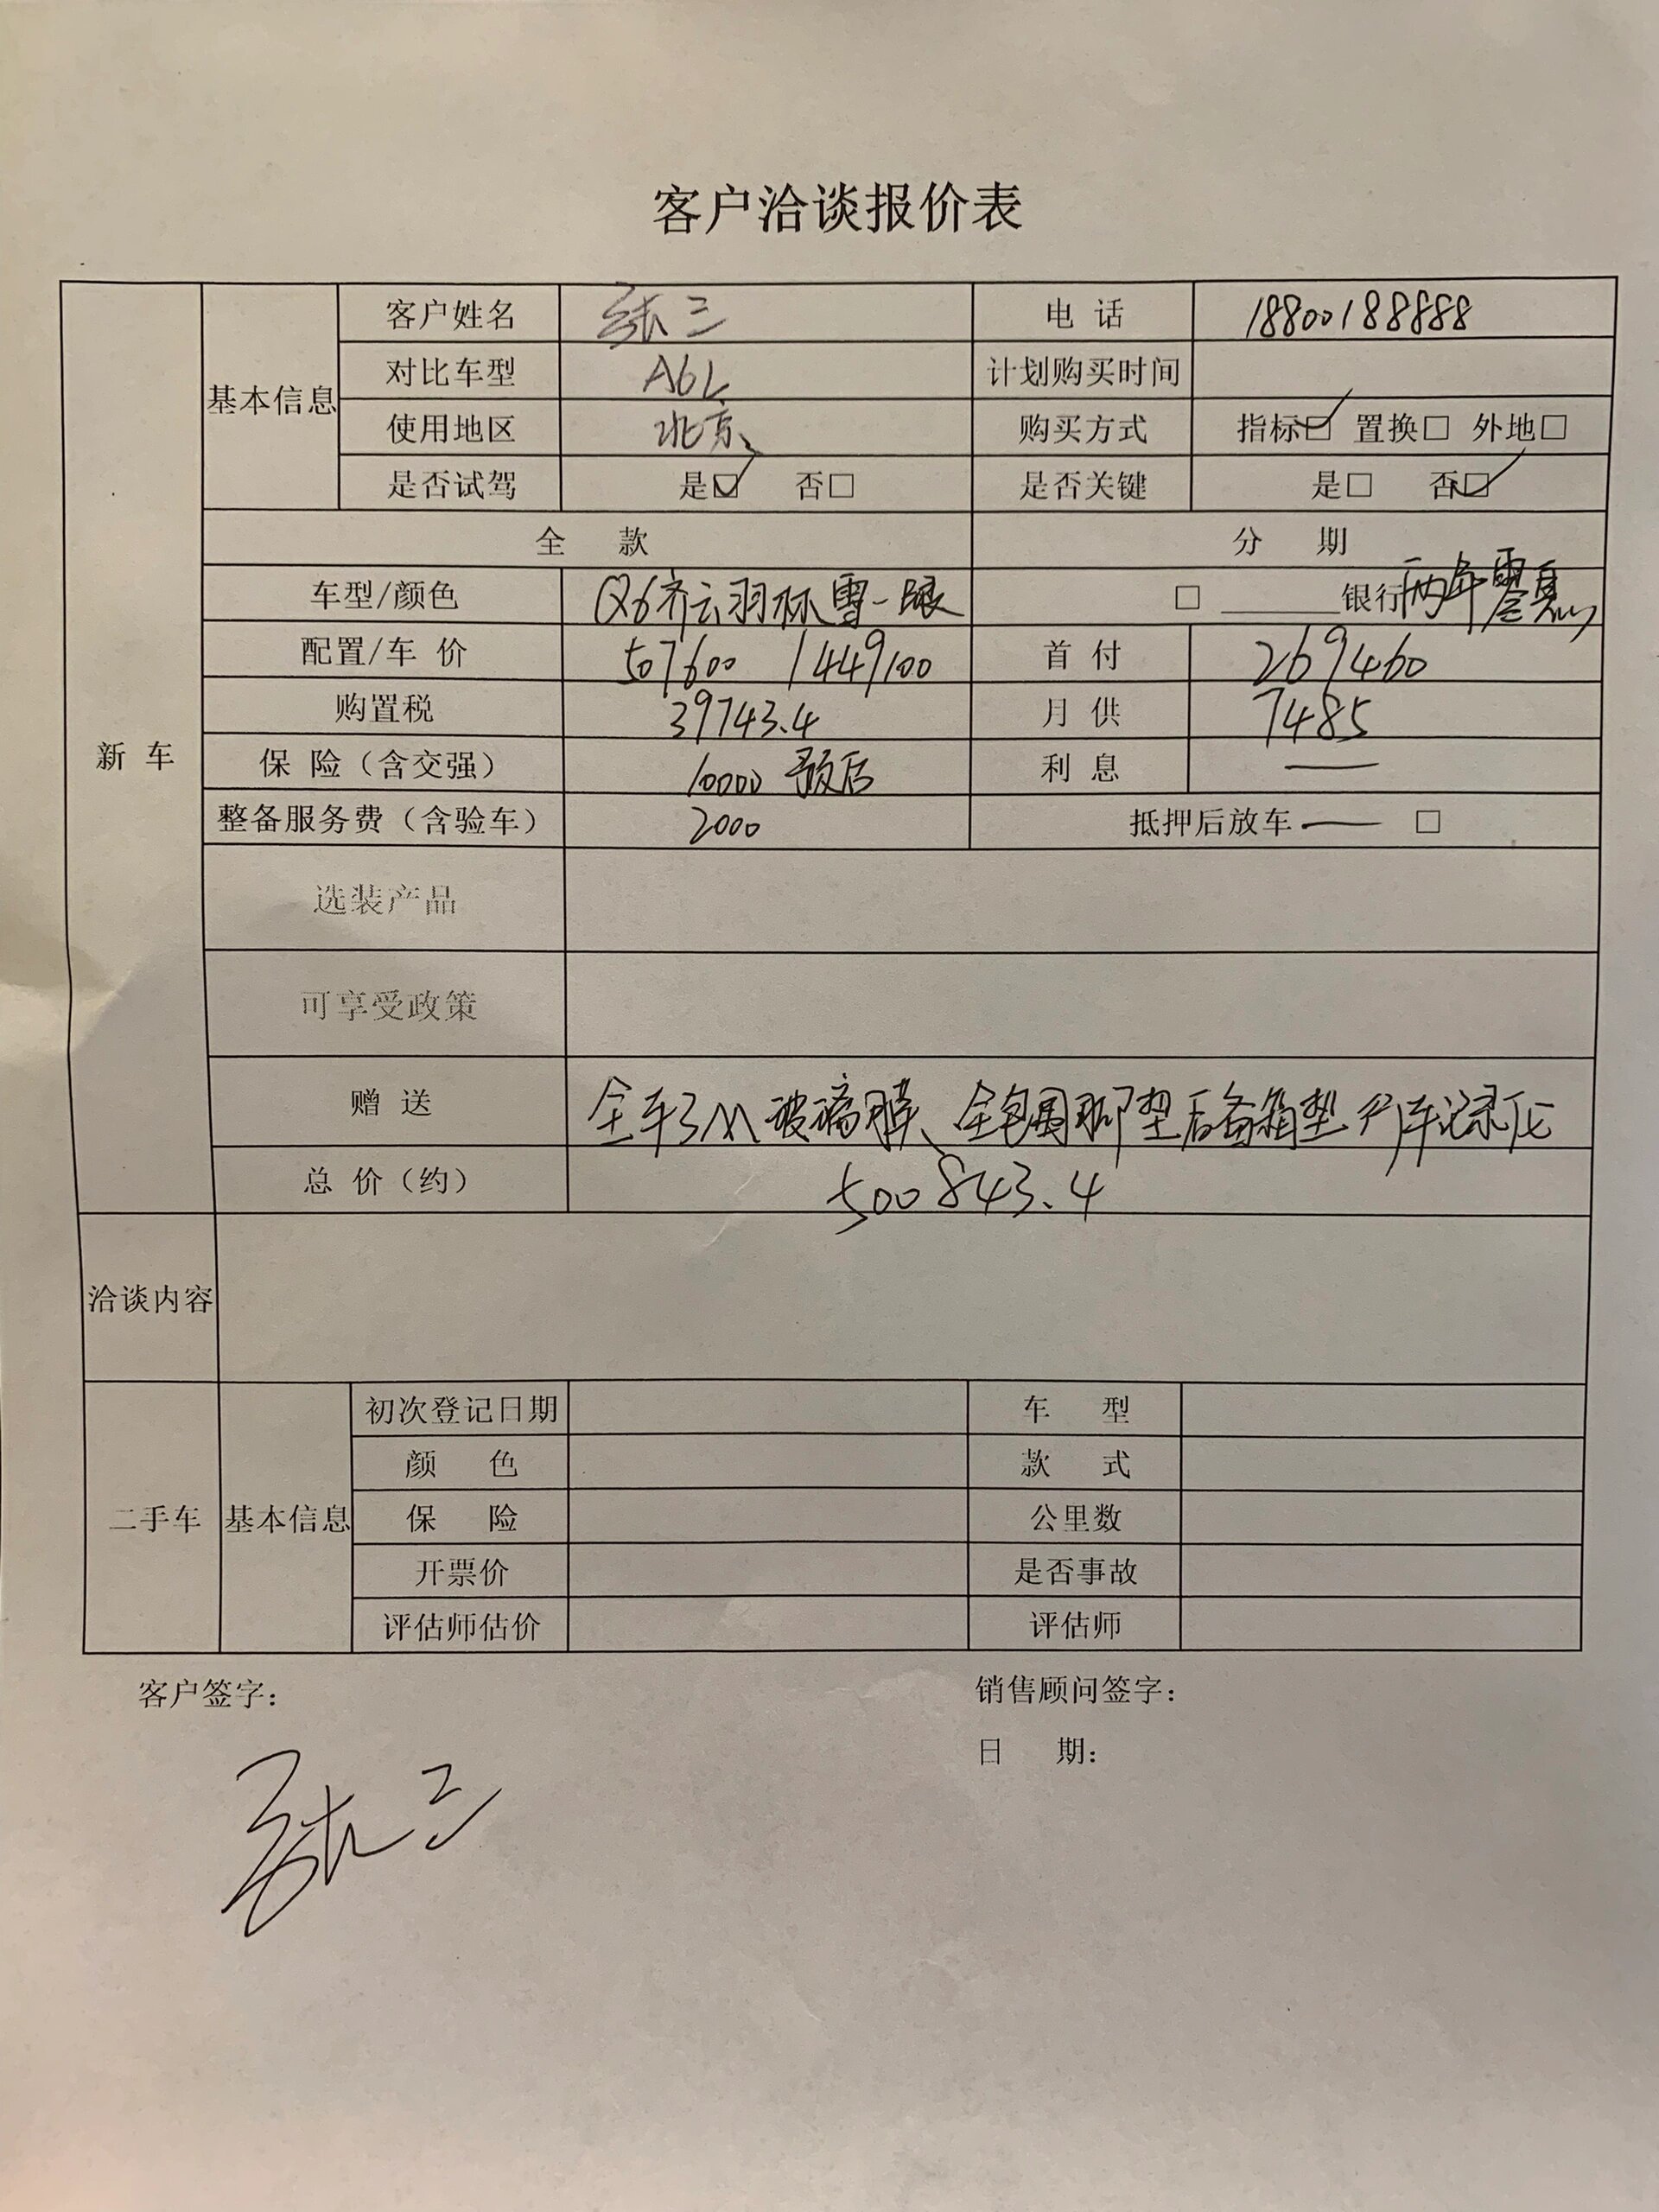 客户洽谈报价表
新 车
基本信息
客户姓名 张三 电 话 18800188888
对比车型 A6L 计划购买时间
使用地区 北京 购买方式 指标☑ 置换□ 外地□
是否试驾 是☑ 否□ 是否关键 是□ 否☑
全 款 分 期
车型/颜色 Q6齐云羽林 雪一银 □ ______银行 两年零息
配置/车 价 507600 /449100 首 付 269460
购置税 39743.4 月 供 7485
保 险（含交强） 10000 后 利 息 —
整备服务费（含验车） 2000 抵押后放车 — □
选装产品
可享受政策
赠 送 全车3M玻璃膜、全包围脚垫 后备箱垫 行车记录仪
总 价（约） 500843.4
洽谈内容
二手车
基本信息
初次登记日期 车 型
颜 色 款 式
保 险 公里数
开票价 是否事故
评估师估价 评估师
客户签字： 销售顾问签字：
日 期：
张三